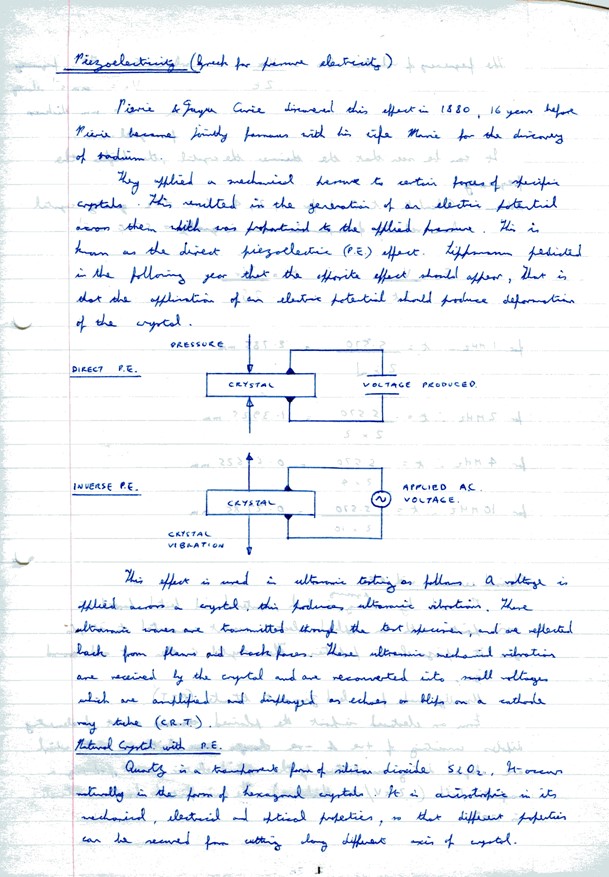 Piezoelectricity (Greek for pressure electricity)
Pierre & Jacques Curie discovered this effect in 1880, 16 years before
Pierre became jointly famous with his wife Marie for the discovery
of radium.
They applied a mechanical pressure to certain faces of specific
crystals. This resulted in the generation of an electric potential
across them which was proportional to the applied pressure. This is
known as the direct piezoelectric (P.E) effect. Lippmann predicted
in the following year that the opposite effect should appear, that is
that the application of an electric potential should produce deformation
of the crystal.
PRESSURE
DIRECT P.E.
CRYSTAL
VOLTAGE PRODUCED.
INVERSE P.E.
CRYSTAL
APPLIED AC.
VOLTAGE.
CRYSTAL
VIBRATION
This effect is used in ultrasonic testing as follows. A voltage is
applied across a crystal this produces ultrasonic vibrations. These
ultrasonic waves are transmitted through the test specimen, and are reflected
back from flaws and back faces. These ultrasonic mechanical vibrations
are received by the crystal and are reconverted into small voltages
which are amplified and displayed as echoes or blips on a cathode
ray tube (C.R.T.)
Natural Crystal with P.E.
Quartz is a transparent form of silicon dioxide SiO2. It occurs
naturally in the form of hexagonal crystals. It is anisotropic in its
mechanical, electrical and optical properties, so that different properties
can be secured from cutting along different axis of crystal.
1